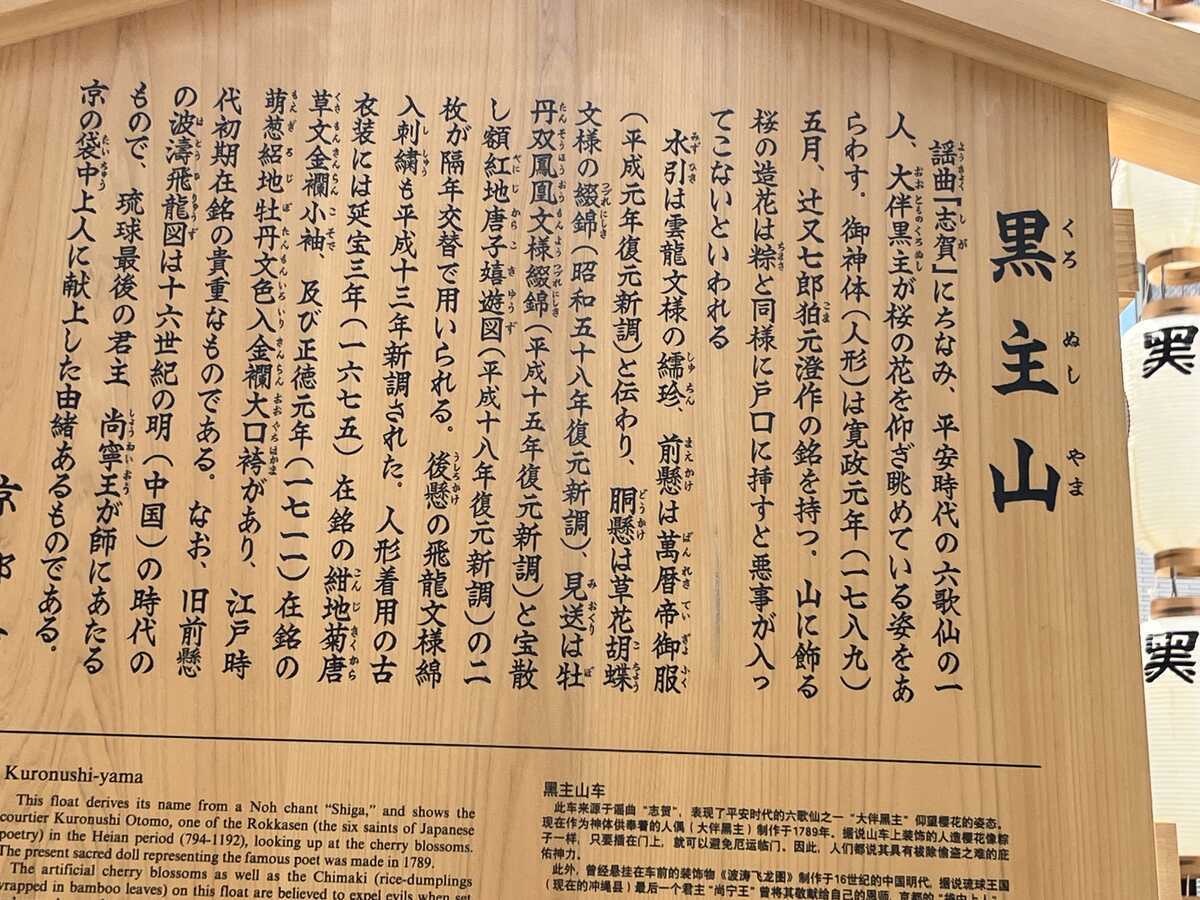 黒主山
くろぬしやま
謡曲『志賀』にちなみ、平安時代の六歌仙の一
人、大伴黒主が桜の花を仰ぎ眺めている姿をあ
らわす。御神体(人形)は寛政元年(一七八九)
五月、辻又七郎狛元澄作の銘を持つ。山に飾る
桜の造花は粽と同様に戸口に挿すと悪事が入っ
てこないといわれる
水引は雲龍文様の繻珍、前懸は萬暦帝御服
(平成元年復元新調)と伝わり、胴懸は草花胡蝶
文様の綴錦(昭和五十八年復元新調)、見送は牡
丹双鳳凰文様綴錦(平成十五年復元新調)と宝散
し額紅地唐子嬉遊図(平成十八年復元新調)の二
枚が隔年交替で用いられる。後懸の飛龍文様綿
入刺繍も平成十三年新調された。人形着用の古
衣装には延宝三年(一六七五)在銘の紺地菊唐
草文金襴小袖、及び正徳元年(一七一一)在銘の
萌葱絽地牡丹文色入金襴大口袴があり、江戸時
代初期在銘の貴重なものである。なお、旧前懸
の波濤飛龍図は十六世紀の明(中国)の時代の
もので、琉球最後の君主 尚寧王が師にあたる
京の袋中上人に献上した由緒あるものである。
京都
Kuronushi-yama
This float derives its name from a Noh chant "Shiga," and shows the
courtier Kuronushi Otomo, one of the Rokkasen (the six saints of Japanese
poetry) in the Heian period (794-1192), looking up at the cherry blossoms.
The present sacred doll representing the famous poet was made in 1789.
The artificial cherry blossoms as well as the Chimaki (rice-dumplings
wrapped in bamboo leaves) on this float are believed to expel evils when set
黑主山车
此车来源于谣曲"志贺"，表现了平安时代的六歌仙之一"大伴黑主"仰望樱花的姿态。
现在作为神体供奉着的人偶（大伴黑主）制作于1789年。据说山车上装饰的人造樱花像粽
子一样，只要插在门上，就可以避免厄运临门。因此，人们都说其具有祓除偷盗之难的庇
佑神力。
此外，曾经悬挂在车前的装饰物《波涛飞龙图》制作于16世纪的中国明代，据说琉球王国
（现在的冲绳县）最后一个君主"尚宁王"曾将其敬献给自己的恩师，京都的"袋中上人"。
黑
黑